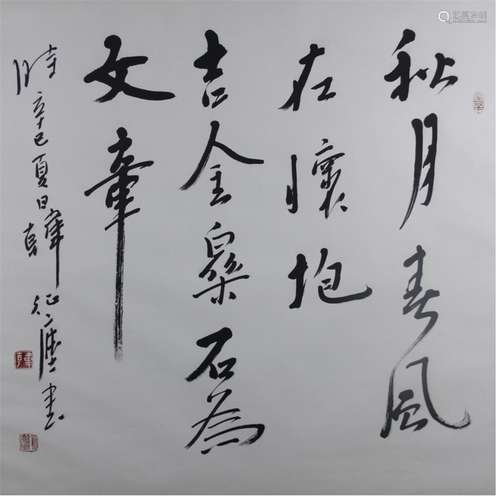 秋月春风
在懷抱
吉金樂石為
文章
時辛巳夏日韓征塵書